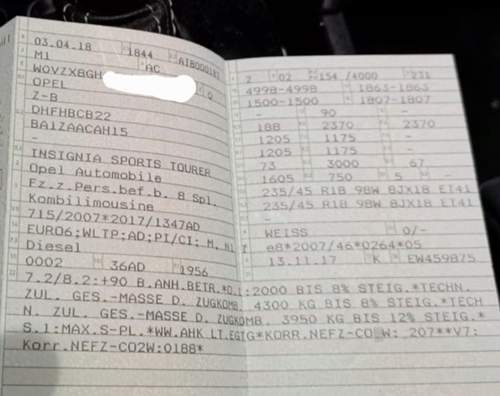 03.04.18 1844 AIB000187
M1 AC
W0VZX8GH 0
OPEL
Z-B
DHFHBCB22
BA1ZAACAH15
-
INSIGNIA SPORTS TOURER
Opel Automobile
Fz.z.Pers.bef.b. 8 Spl.
Kombilimousine
715/2007*2017/1347AD
EURO6;WLTP;AD;PI/CI; M, N1
Diesel
0002 36AD 1956
2 02 154 /4000 231
4998-4998 1863-1863
1500-1500 1807-1807
- 90 -
188 2370 2370
1205 1175 -
1205 1175 -
73 3000 67
1605 750 5 -
235/45 R18 98W 8JX18 ET41
235/45 R18 98W 8JX18 ET41
-
WEISS 0/-
e8*2007/46*0264*05
13.11.17 K EW459875
7.2/8.2:+90 B.ANH.BETR.*O.1:2000 BIS 8% STEIG.*TECHN.
ZUL. GES.-MASSE D. ZUGKOMB. 4300 KG BIS 8% STEIG.*TECH
N. ZUL. GES.-MASSE D. ZUGKOMB. 3950 KG BIS 12% STEIG.*
S.1:MAX.S-PL.*WW.AHK LT.EGTG*KORR.NEFZ-CO W: 207**V7:
Korr.NEFZ-CO2W:0188*